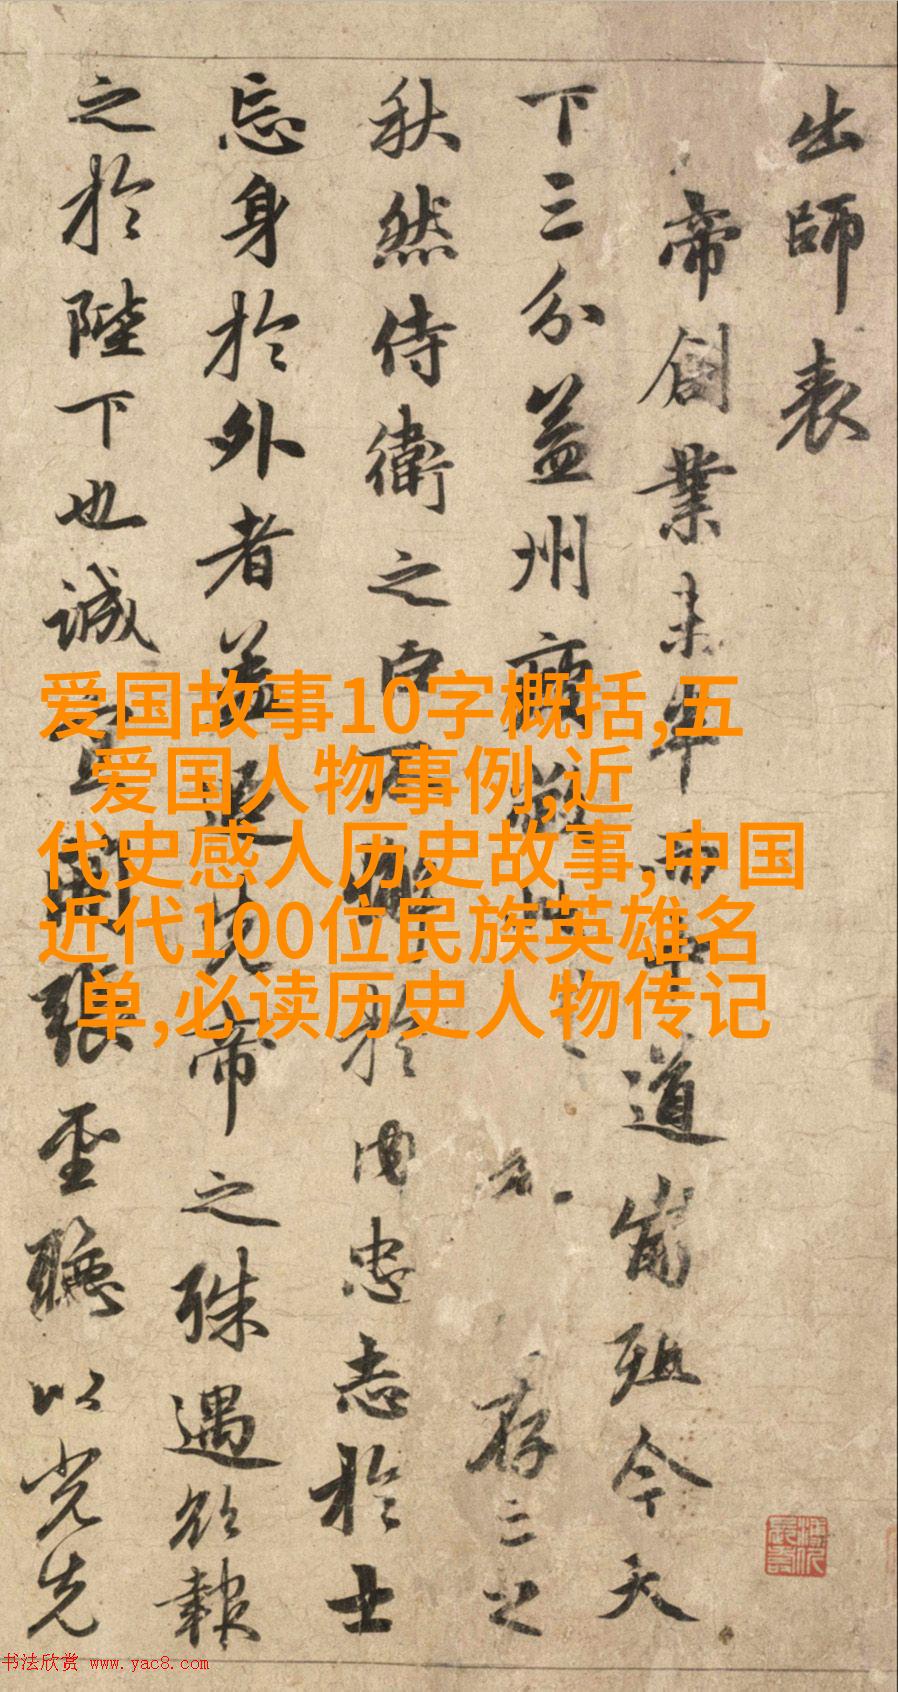 出師表
帝創業未半而中道崩殂今天
下三分益州疲敝此存亡之
秋然侍衛之臣不懈於内忠志於士
忘身於外者蓋追先帝之殊遇欲報
之於陛下也誠宜開張聖聽以光先
爱国故事10字概括,五
爱国人物事例,近
代史感人历史故事,中国
近代100位民族英雄名
单,必读历史人物传记
书法欣赏 www.yac8.com